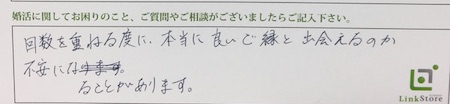 婚活に関してお困りのこと、ご質問やご相談がございましたらご記入下さい。
回数を重ねる度に、本当に良いご縁と出会えるのか
不安になります。
ることがあります。
LinkStore